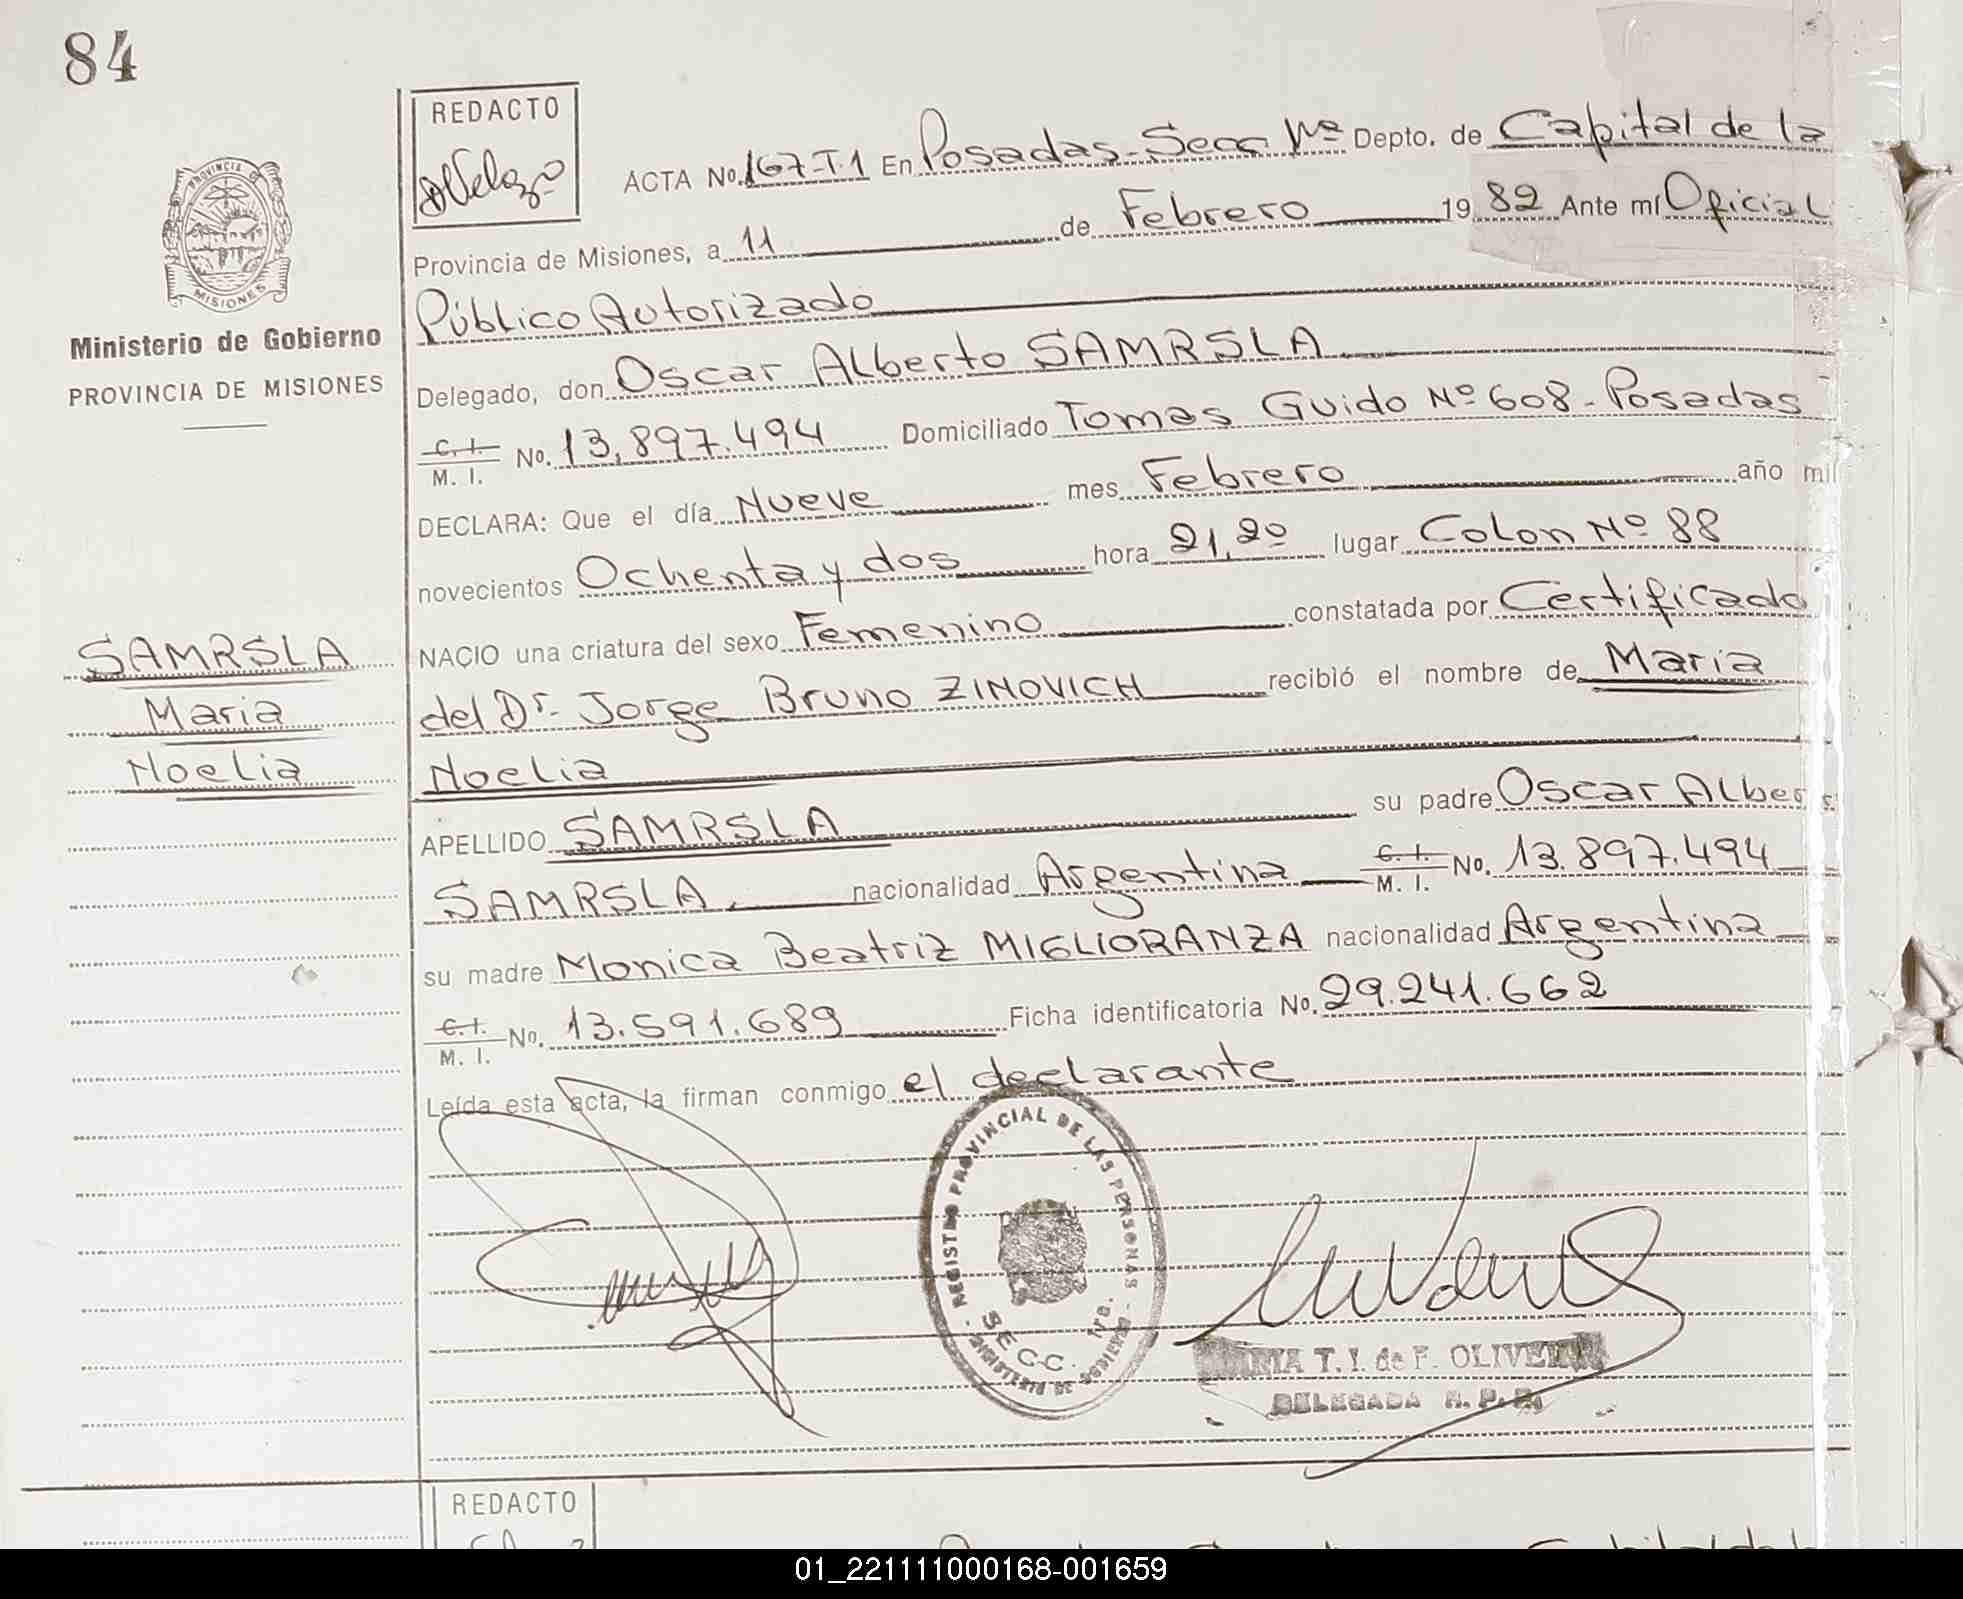 84
REDACTO
PROVINCIA DE
MISIONES
Ministerio de Gobierno
PROVINCIA DE MISIONES
ACTA No. 167-T.1 En Posadas-Secc 1ra Depto. de Capital de la
Provincia de Misiones, a 11 de Febrero 1982 Ante mí Oficial
Público Autorizado
Delegado, don Oscar Alberto SAMRSLA
C. I.
M. I. No. 13.897.494 Domiciliado Tomas Guido Nº 608 - Posadas
DECLARA: Que el día Nueve mes Febrero año mil
novecientos Ochenta y dos hora 21,20 lugar Colon Nº 88
NACIO una criatura del sexo Femenino constatada por Certificado
del Dr. Jorge Bruno ZINOVICH recibió el nombre de Maria
Noelia
APELLIDO SAMRSLA su padre Oscar Alber
SAMRSLA. nacionalidad Argentina C. I.
M. I. No. 13.897.494
su madre Monica Beatriz MIGLIORANZA nacionalidad Argentina
C. I.
M. I. No. 13.591.689 Ficha identificatoria No. 29.241.662
Leída esta acta, la firman conmigo el declarante
SAMRSLA
Maria
Noelia
REGISTRO PROVINCIAL DE LAS PERSONAS
SECC. 1ra.
T. I. de F. OLIVEIRA
DELEGADA R. P. P.
REDACTO
01_221111000168-001659